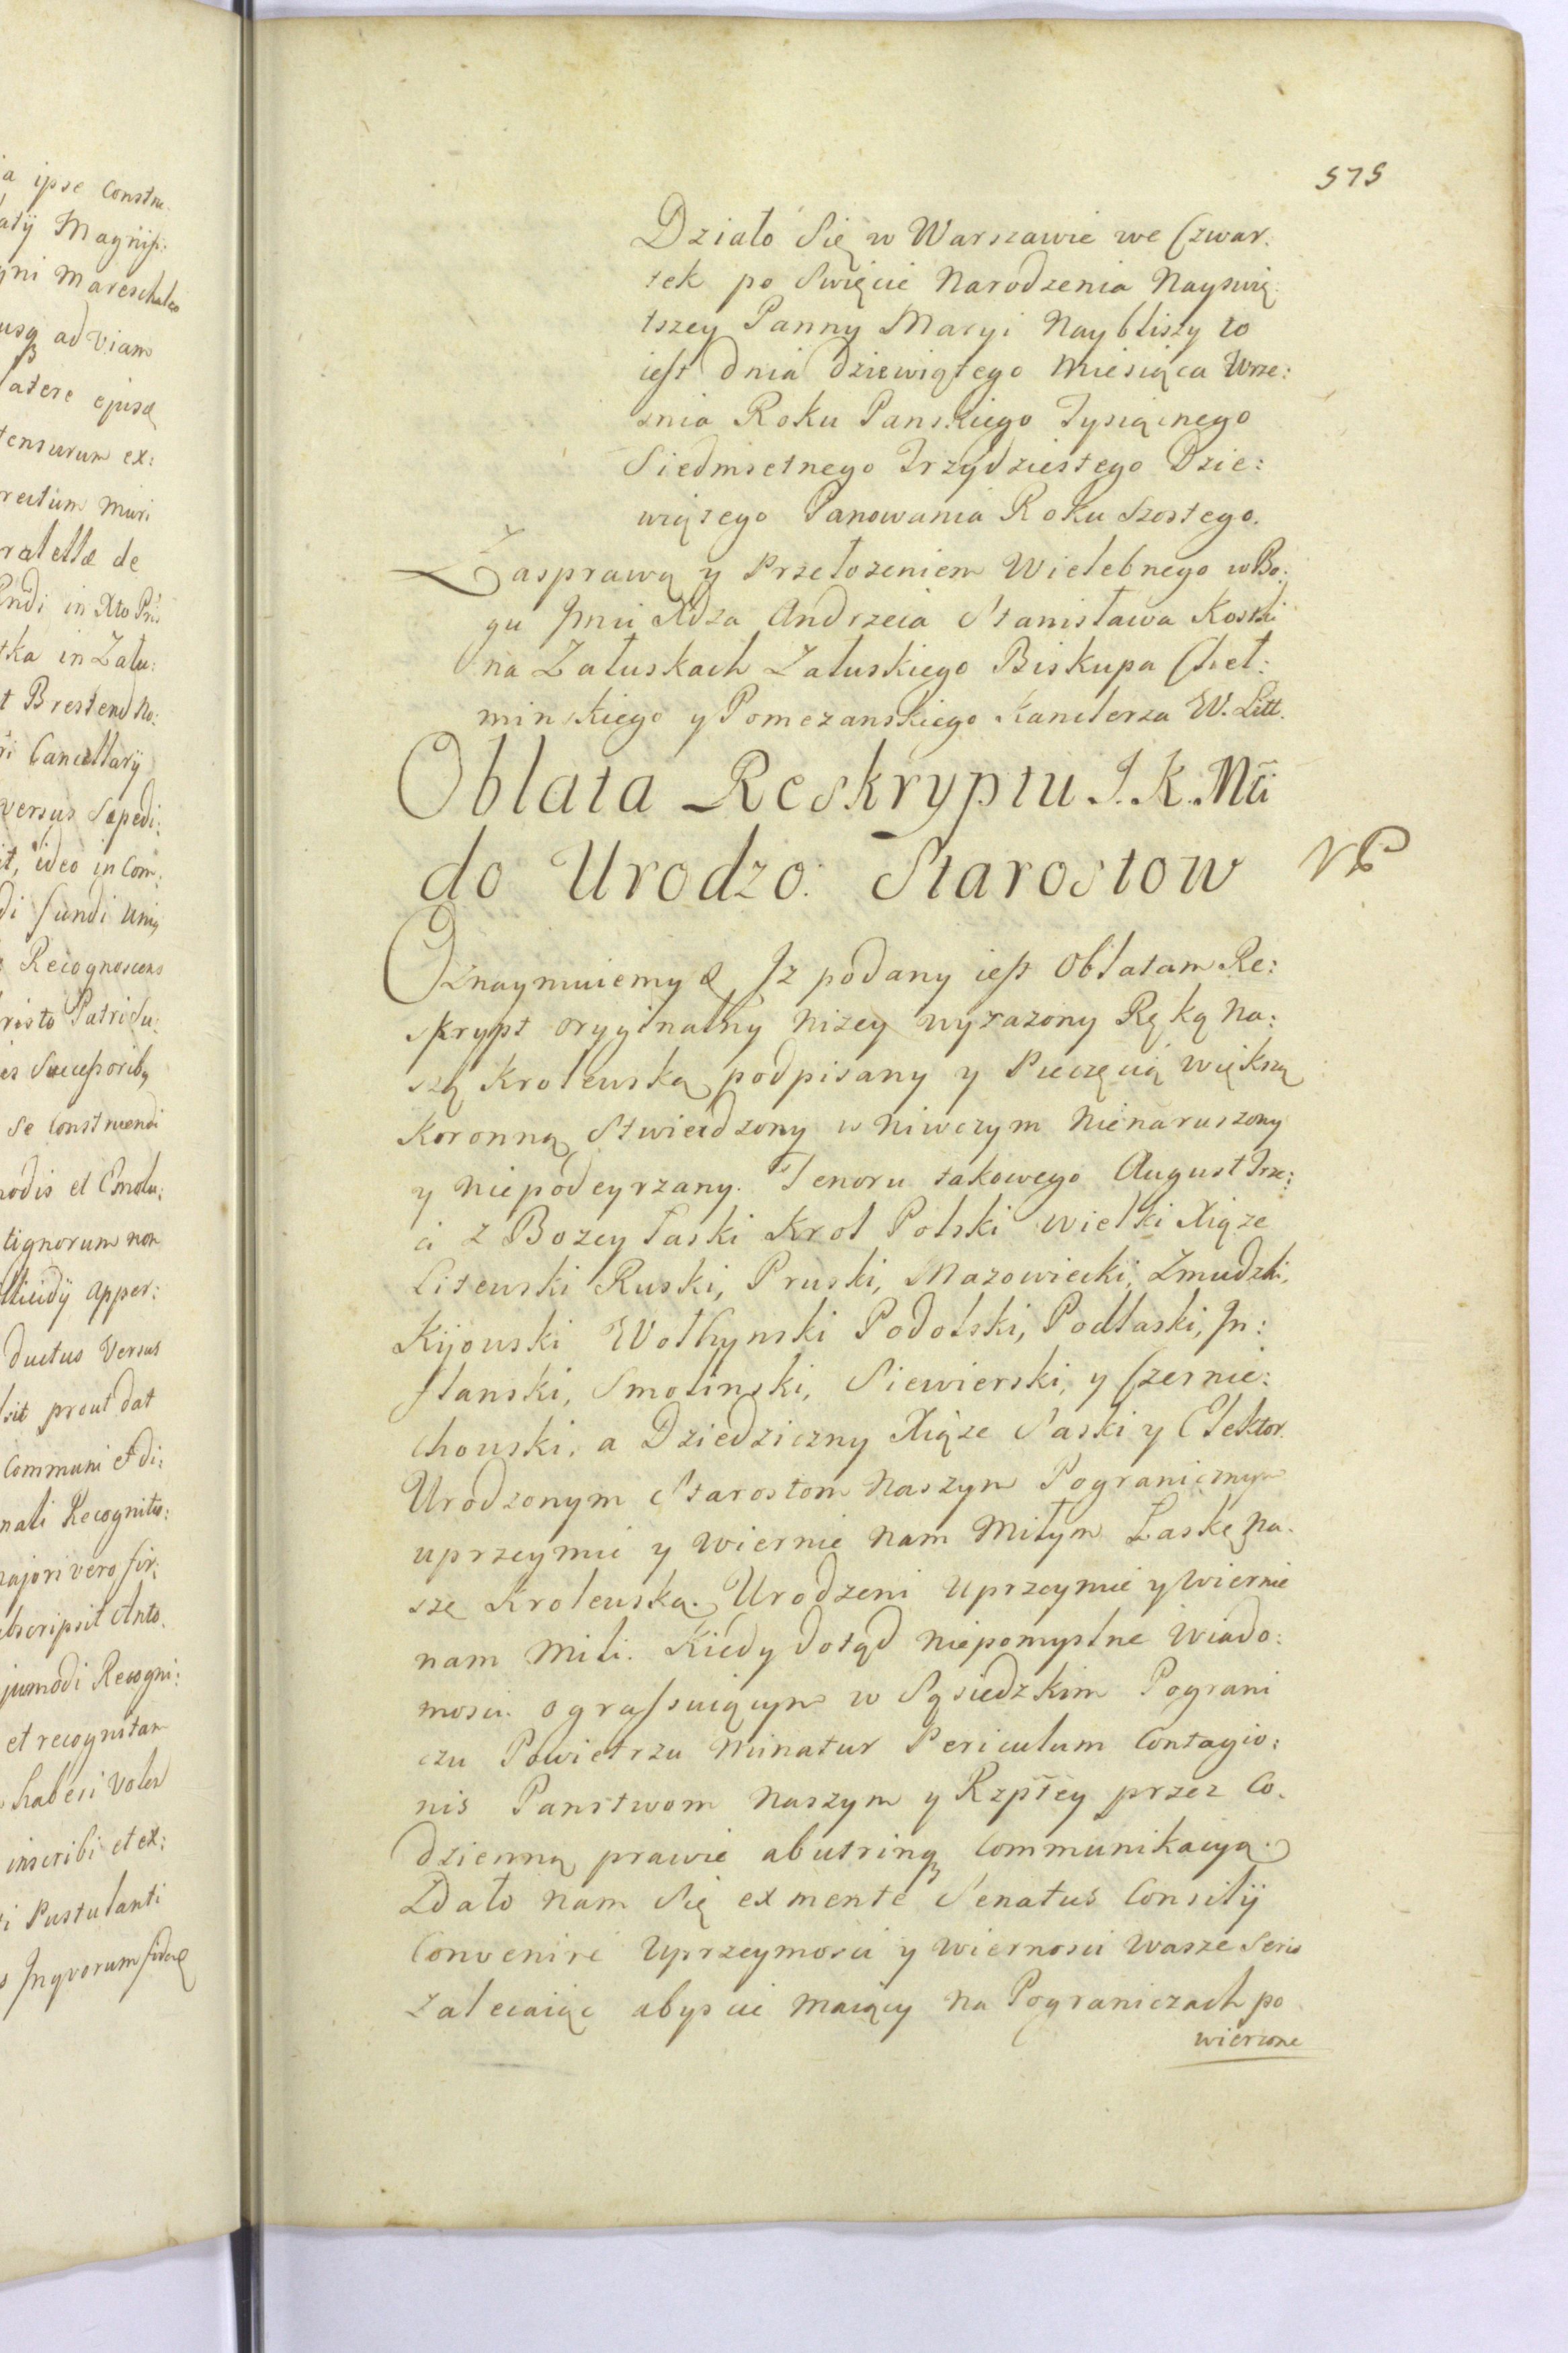 a ipse Constru
atÿ Magnif:
gni Mareschalco
usq ad Viam
latere ejusd
tensurum ex:
rectum Muri
ratellæ de
Endi in Xto Pris
tka in Zału:
t Brestend No:
ri Cancellarÿ
versus Sæpedi:
it, ideo in Com:
di fundi Uniq
Recognoscens
risto Patri Su:
es Successoribq
se Construendi
modis et Emolu:
tignorum non
llicidÿ apper:
ductus Versus
sit prout dat
Communi et di:
nali Recognitio:
majori vero fir:
bscripsit Anto.
jusmodi Recogni:
et recognitam
haberi Volen
inscribi et ex:
i Postulanti
s Inqvorum fidem
575
Działo Się w Warszawie we Czwar:
tek po Swięcie Narodzenia Nayswię:
tszey Panny Maryi Naybliszy to
iest dnia dziewiątego Miesiąca Wrze:
snia Roku Panskiego Tysiącnego
Siedmsetnego Trzydziestego Dzie:
wiątego Panowania Roku Szostego.
Zasprawą y Przełozeniem Wielebnego w Bo:
gu Jmci Xdza Andrzeia Stanisława Kostki
na Załuskach Załuskiego Biskupa Cheł:
minskiego y Pomezanskiego Kanclerza W. Litt.
Oblata Reskryptu J. K. Mci
do Urodzo: Starostow
NB
Oznaymuiemy & Jz podany iest Oblatam Re:
skrypt oryginalny nizey wyrazony Ręką Na:
szą Krolewską podpisany y Pieczęcią większą
Koronną Stwierdzony w niwczym nienaruszony
y niepodeyrzany. Tenoru takowego August Trze:
ci z Bozey Łaski Krol Polski Wielki Xiąze
Litewski Ruski, Pruski, Mazowiecki, Zmudzki,
Kijowski Wołhynski Podolski, Podlaski, In:
flanski, Smolinski, Siewierski, y Czernie:
chowski, a Dziedziczny Xiąze Saski y Elektor.
Urodzonym Starostom Naszym Pogranicznym
uprzeymie y wiernie Nam Miłym Łaskę Na:
szę Krolewską. Urodzeni Uprzeymie y Wiernie
nam Mili. Kiedy dotąd niepomyslne Wiado:
mosci o grassuiącym w Sąsiedzkim Pograni
czu Powietrzu minatur Periculum Contagio:
nis Panstwom Naszym y Rzpltey przez Co:
dzienną prawie abutrinq Communikacyą.
Zdało nam Się ex mente Senatus Consilÿ
Convenire Uprzeymosci y Wiernosci Wasze Serio
Zalecaiąc abyscie maiący na Pograniczach po
wierzone